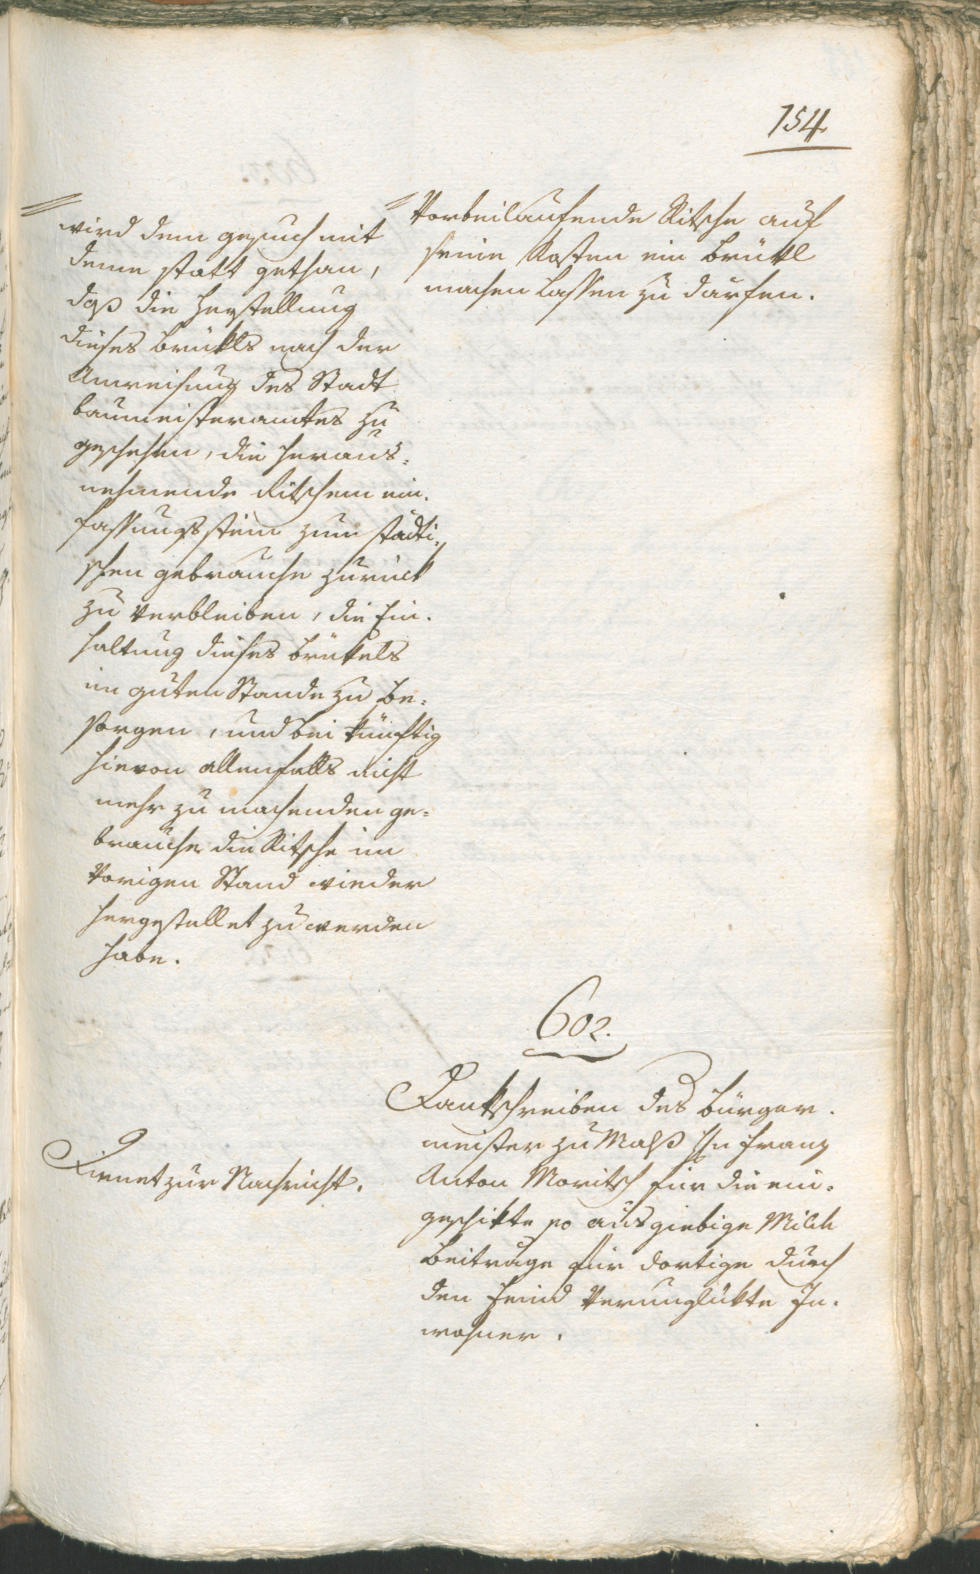 154
wird dem gesuch mit
deme statt gethan,
daß die Herstellung
dieses Brükls nach der
Anweisung des Stadt
baumeisteramtes zu
geschehen, die heraus-
nehmende Ritschen ein-
fassungsstein zum städti-
schen gebrauche zurück
zu verbleiben, die Ein-
haltung dieses Brükels
im guten Stande zu be-
sorgen, und bei künftig
hievon allenfalls nicht
mehr zu machenden ge-
brauche die Ritsche im
vorigen Stand wieder
hergestellet zu werden
habe.
Vorbeilaufende Ritsche auf
seine Kosten ein Brükl
machen lassen zu därfen.
602.
Dankschreiben des Bürger-
meister zu Malß Hn Franz
Anton Moritsch für die ein-
geschikte so ausgiebige Milde
Beiträge für dortige durch
den Feind Verunglükte In-
wohner.
Dienet zur Nachricht.